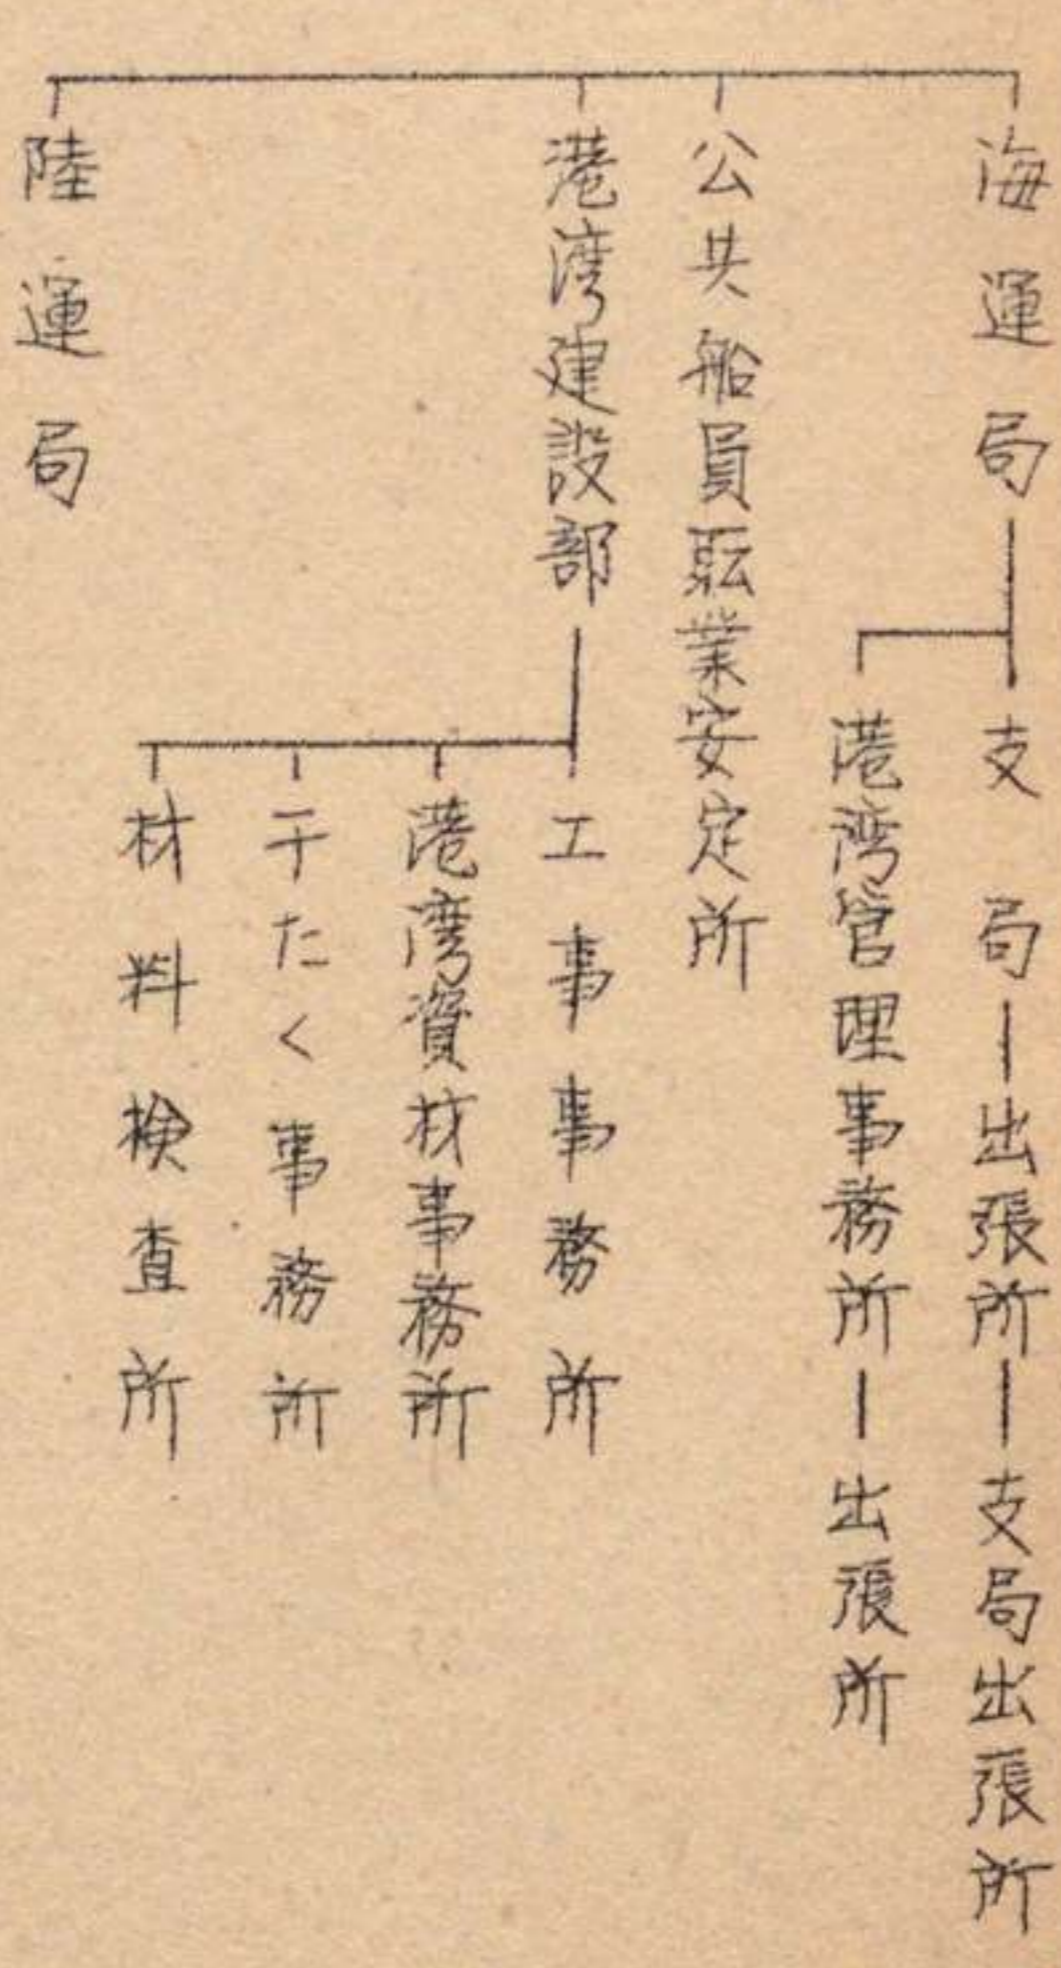 海運局―支局―出張所―支局出張所
港湾管理事務所―出張所
公共船員耺業安定所
港湾建設部
工事事務所
港湾資材事務所
干たく事務所
材料検査所
陸運局